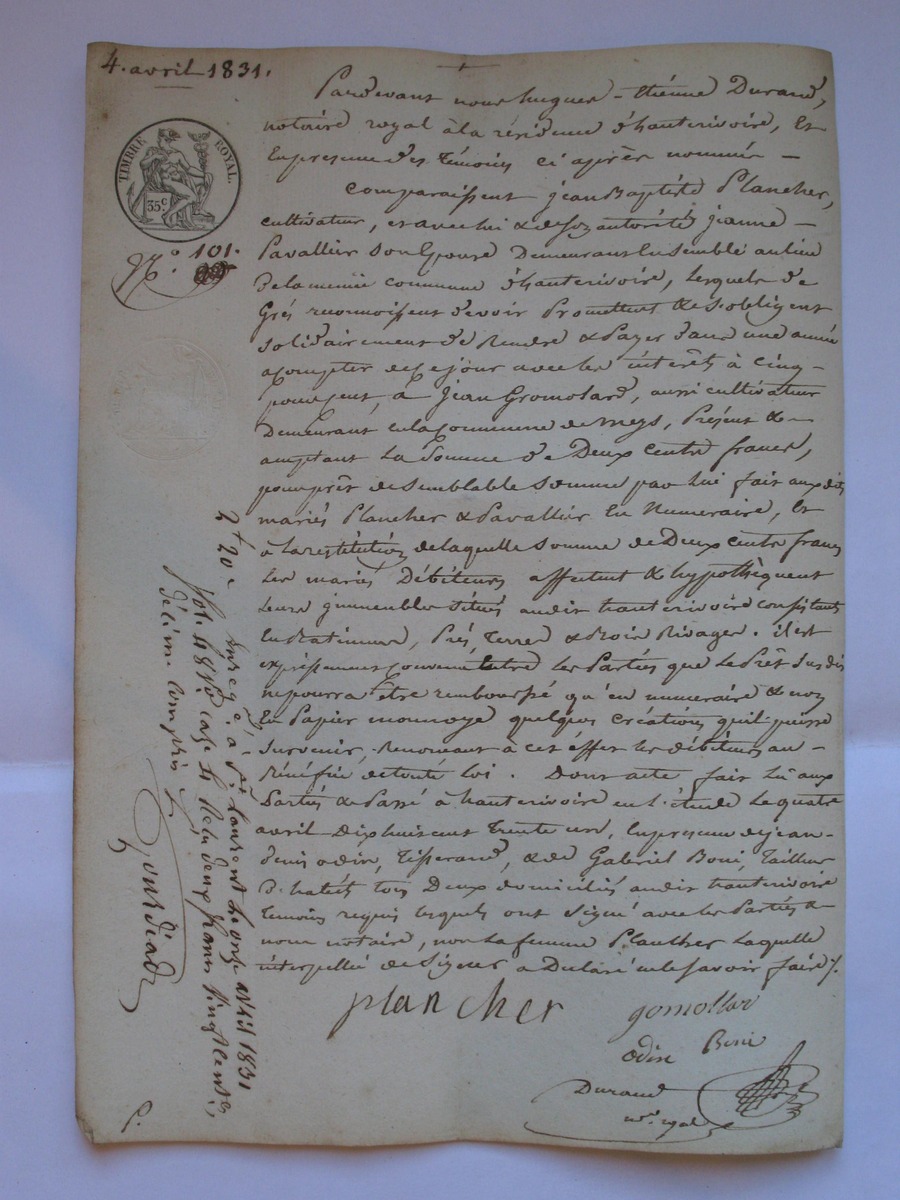 4. avril 1831.
TIMBRE ROYAL.
35c
N.° 101.
Pardevant nous hugues-Etiénne Durand,
notaire royal à la résidence d'hauterivoire, Et
En presence des témoins ci après nommés —
Comparaissent jean Baptiste Plancher,
cultivateur, et avec lui & de son autorité jeanne
Pavallier son Epouse Demeurans Ensemble au lieu
De la même commune d'hauterivoire, Lesquels de
Grés reconnoissent devoir Promettent & S'obligent
solidairement de Rendre & Payer dans une année
acompter de ce jour avec les intérêts à cinq
pour cent, à Jean Gromolard, aussi cultivateur
Demeurant en la Commune de meys, Présent &
acceptant La Somme de Deux cents francs,
pour prêt de semblable somme par lui fait auxdits
mariés Plancher & Pavallier En Numeraire, Et
à la restitution de laquelle somme de Deux cents francs
Les mariés Débiteurs affectent & hypothèquent
Leurs immeubles situés audit hauterivoire consistants
En Batimens, Prés, Terres & Bois Rivages. il est
expréssement convenu entre les Parties que le Prêt susdit
ne pourra Etre remboursé qu'en numeraire & non
En Papier monnoye quelques créations qu'il puisse
survenir, Renonçant à cet éffet les débiteurs au
Bénéfice de toute loi. Dont acte fait lu aux
Parties & Passé à hauterivoire en l'étude Le quatre
avril Dix huit cent trente un, En presence de jean
denis odin, Tisserand, & de Gabriel Boni, Tailleur
D'habits tous Deux domiciliés audit hauterivoire
témoins requis lesquels ont signé avec les Parties &
nous notaire, non La femme Plancher Laquelle
interpellée de Signer a Declaré ne le savoir faire ./.
plancher
gomollar
odin Boni
Durand
nre. royal
2f 20c
Enregé. à St. Laurent le onze avril 1831
fol. 48 vo. case 4 Reçu deux francs vingt cents,
décime compris
P.